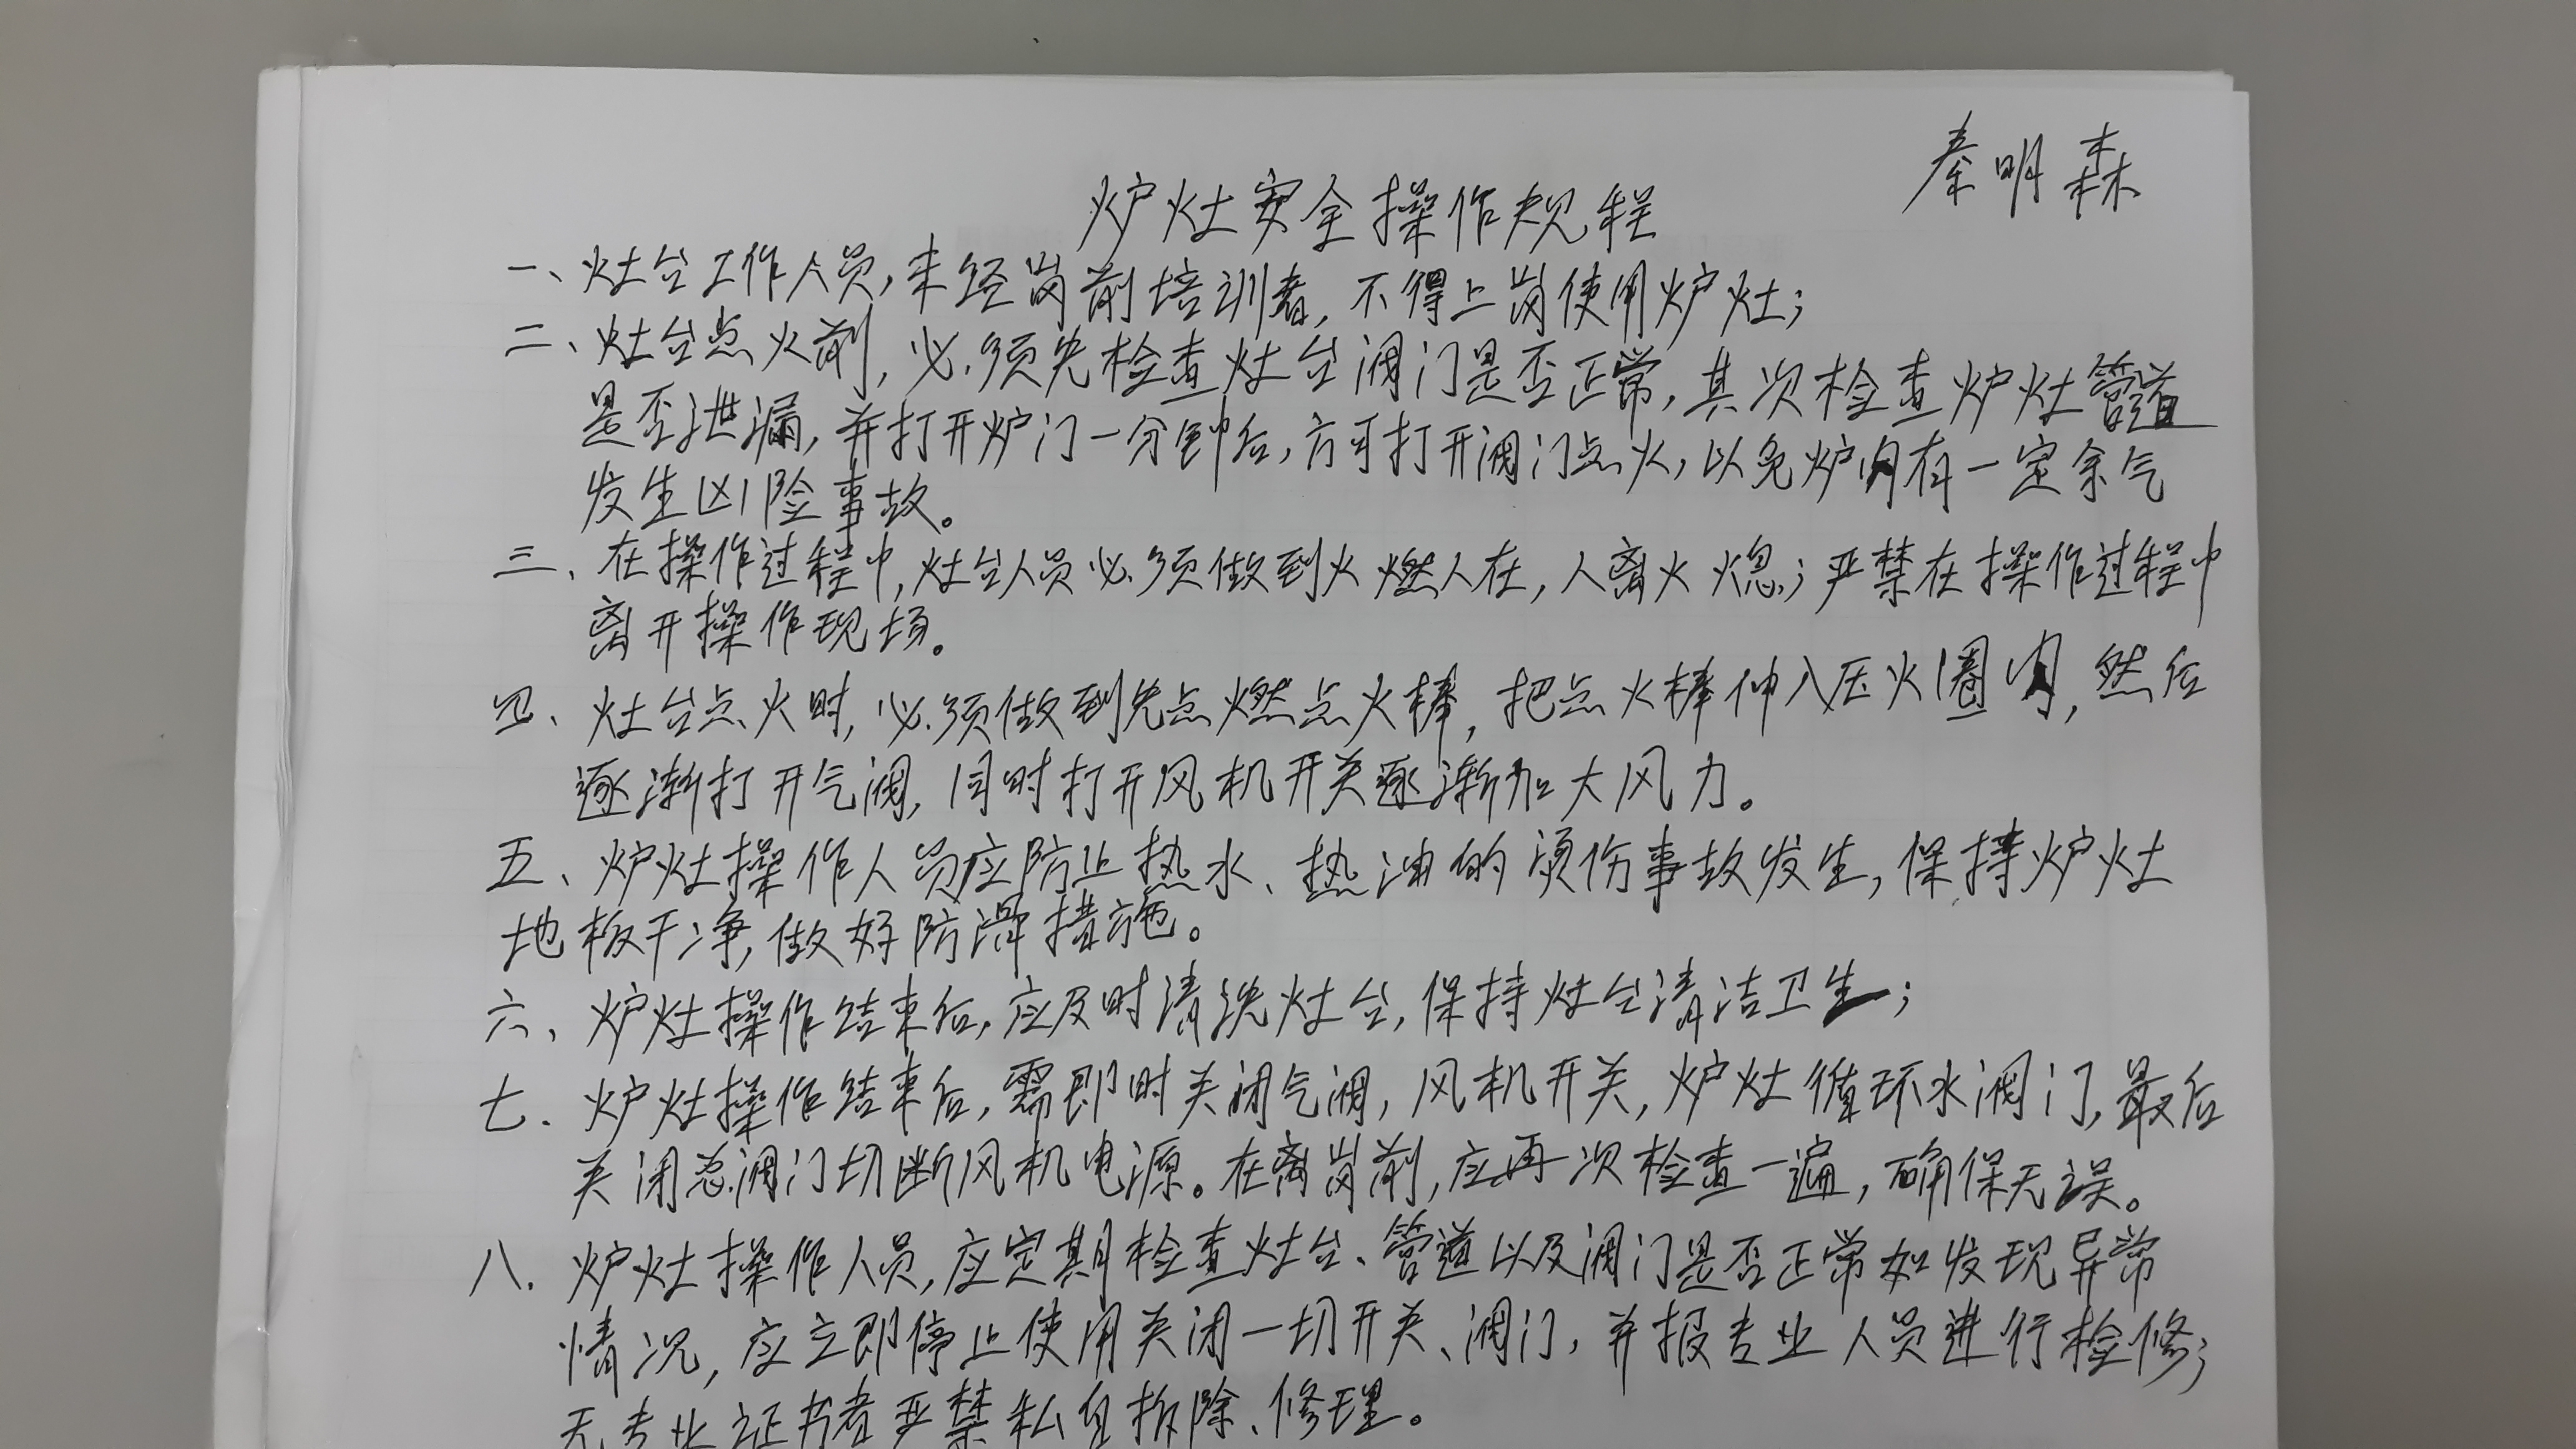 秦明森
炉灶安全操作规程
一、灶台工作人员,未经岗前培训者,不得上岗使用炉灶;
二、灶台点火前,必须先检查灶台阀门是否正常,其次检查炉灶管道
是否泄漏,并打开炉门一分钟后,方可打开阀门点火,以免炉内有一定余气
发生凶险事故。
三、在操作过程中,灶台人员必须做到火燃人在,人离火熄;严禁在操作过程中
离开操作现场。
四、灶台点火时,必须做到先点燃点火棒,把点火棒伸入压火圈内,然后
逐渐打开气阀,同时打开风机开关逐渐加大风力。
五、炉灶操作人员应防止热水、热油的烫伤事故发生,保持炉灶
地板干净,做好防滑措施。
六、炉灶操作结束后,应及时清洗灶台,保持灶台清洁卫生;
七.炉灶操作结束后,需即时关闭气阀,风机开关,炉灶循环水阀门,最后
关闭总阀门切断风机电源。在离岗前,应再一次检查一遍,确保无误。
八.炉灶操作人员,应定期检查灶台、管道以及阀门是否正常如发现异常
情况,应立即停止使用关闭一切开关、阀门,并报专业人员进行检修;
无专业证书者严禁私自拆除、修理。